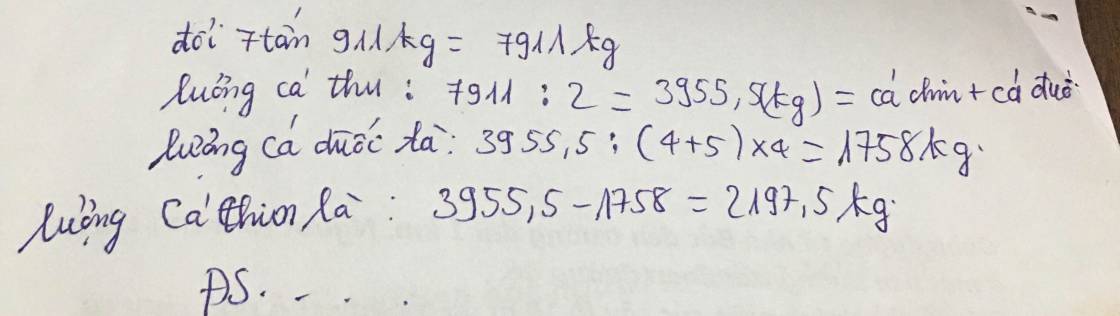 đổi 7tấn 911kg = 7911kg
lượng cá thu : 7911 : 2 = 3955,5(kg) = cá chim + cá đuố
lượng cá đuốc là: 3955,5 : (4+5)×4 = 1758kg.
lượng Cá chim là : 3955,5 - 1758 = 2197,5 kg.
ĐS. - . .